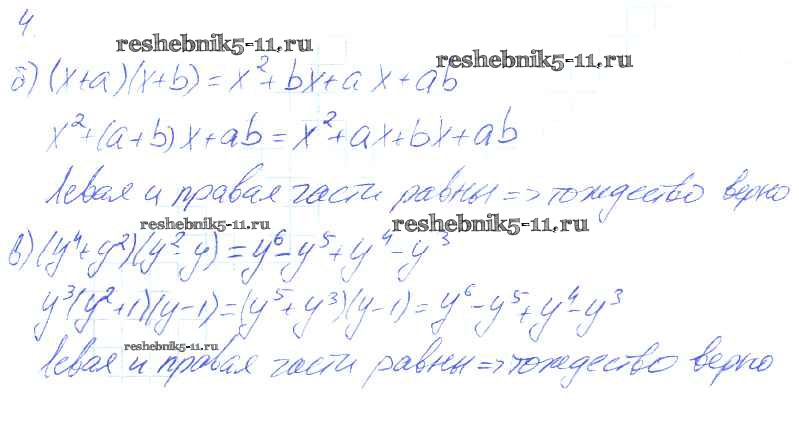 4.
reshebnik5-11.ru
reshebnik5-11.ru
б) (x+a)(x+b) = x²+bx+ax+ab
x²+(a+b)x+ab = x²+ax+bx+ab
Левая и правая части равны => тождество верно
reshebnik5-11.ru
reshebnik5-11.ru
в) (y⁴+y²)(y²-y) = y⁶-y⁵+y⁴-y³
y³(y²+1)(y-1) = (y⁵+y³)(y-1) = y⁶-y⁵+y⁴-y³
reshebnik5-11.ru
Левая и правая части равны => тождество верно